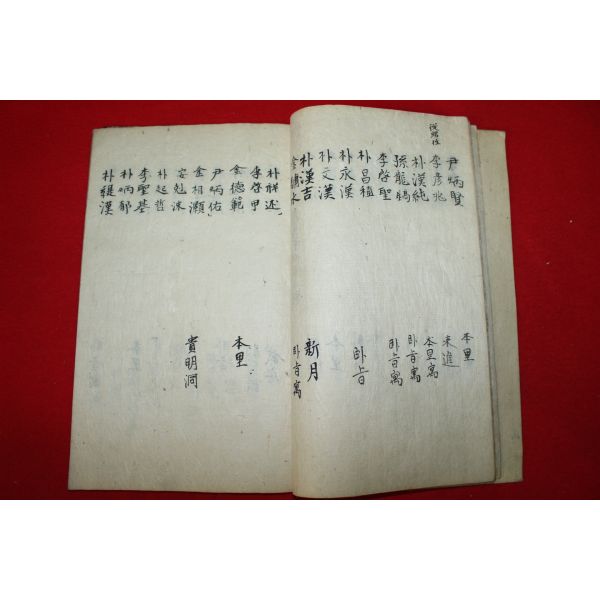 尹炳賢 本里
李彦兆 末進
朴漢純 本里寓
孫龍鶴 卧旨寓
李啓聖 卧旨寓
朴昌植 卧旨
朴永漢
朴文漢
朴漢吉 新月
卧旨寓
朴祥述
李啓甲
金德範 本里
尹炳佑
金相灝
安 貴明洞
朴起哲
李聖基
朴炳郁
朴緹漢